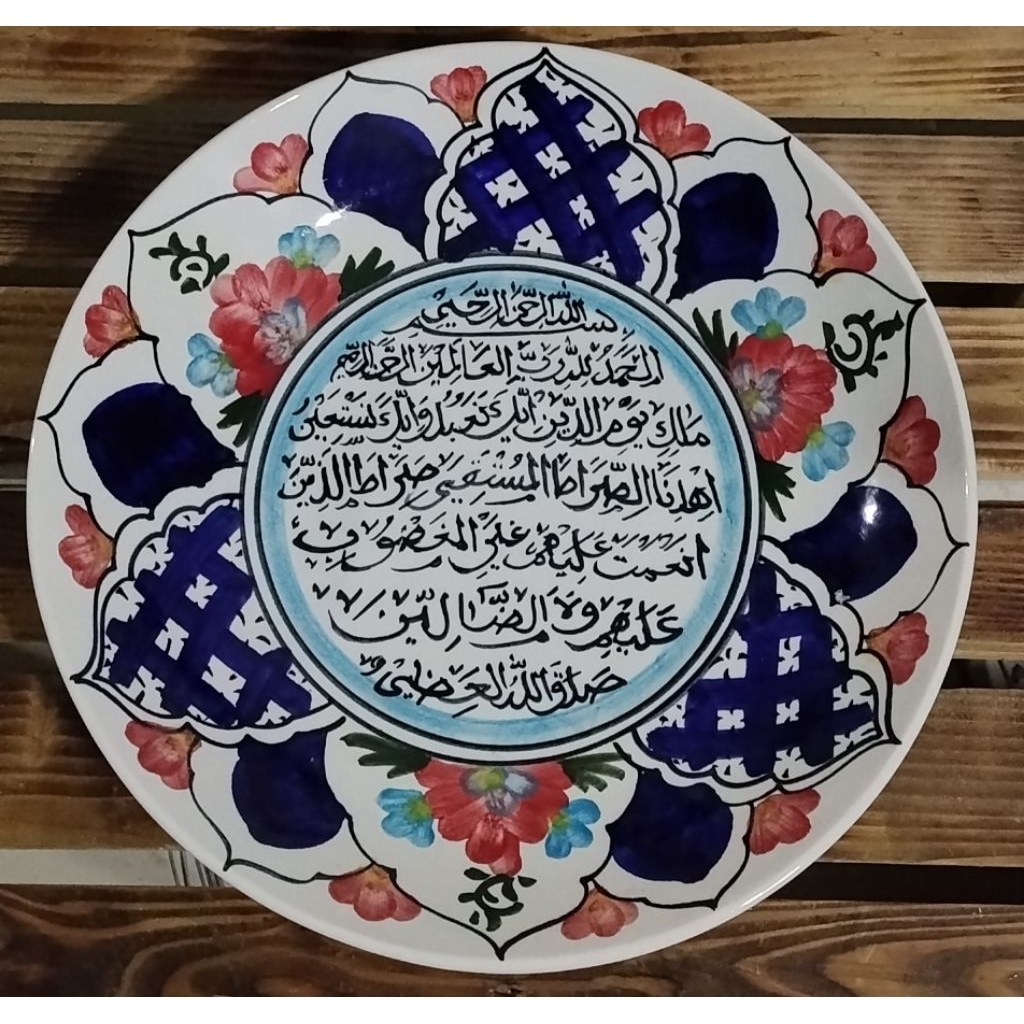 بسم الله الرحمن الرحیم
الحمد لله رب العالمین الرحمن الرحیم
ملك یوم الدین ایاك نعبد وایاك نستعین
اهدنا الصراط المستقیم صراط الذین
انعمت علیهم غیر المغضوب
علیهم ولا الضالین
صدق الله العظیم